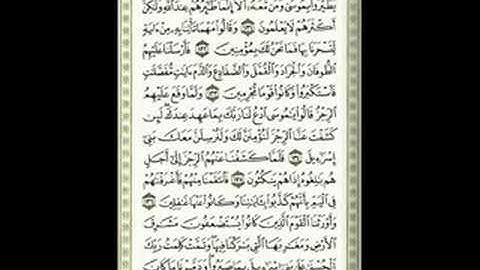 يَطَّيَّرُوا۟ بِمُوسَىٰ وَمَن مَّعَهُۥٓ أَلَآ إِنَّمَا طَٰٓئِرُهُمْ عِندَ ٱللَّهِ وَلَٰكِنَّ
أَكْثَرَهُمْ لَا يَعْلَمُونَ ١٣١ وَقَالُوا۟ مَهْمَا تَأْتِنَا بِهِۦ مِنْ ءَايَةٍ
لِّتَسْحَرَنَا بِهَا فَمَا نَحْنُ لَكَ بِمُؤْمِنِينَ ١٣٢ فَأَرْسَلْنَا عَلَيْهِمُ
ٱلطُّوفَانَ وَٱلْجَرَادَ وَٱلْقُمَّلَ وَٱلضَّفَادِعَ وَٱلدَّمَ ءَايَٰتٍ مُّفَصَّلَٰتٍ
فَٱسْتَكْبَرُوا۟ وَكَانُوا۟ قَوْمًا مُّجْرِمِينَ ١٣٣ وَلَمَّا وَقَعَ عَلَيْهِمُ
ٱلرِّجْزُ قَالُوا۟ يَٰمُوسَى ٱدْعُ لَنَا رَبَّكَ بِمَا عَهِدَ عِندَكَ لَئِن
كَشَفْتَ عَنَّا ٱلرِّجْزَ لَنُؤْمِنَنَّ لَكَ وَلَنُرْسِلَنَّ مَعَكَ بَنِىٓ
إِسْرَٰٓءِيلَ ١٣٤ فَلَمَّا كَشَفْنَا عَنْهُمُ ٱلرِّجْزَ إِلَىٰٓ أَجَلٍ
هُم بَٰلِغُوهُ إِذَا هُمْ يَنكُثُونَ ١٣٥ فَٱنتَقَمْنَا مِنْهُمْ فَأَغْرَقْنَٰهُمْ
فِى ٱلْيَمِّ بِأَنَّهُمْ كَذَّبُوا۟ بِـَٔايَٰتِنَا وَكَانُوا۟ عَنْهَا غَٰفِلِينَ ١٣٦
وَأَوْرَثْنَا ٱلْقَوْمَ ٱلَّذِينَ كَانُوا۟ يُسْتَضْعَفُونَ مَشَٰرِقَ
ٱلْأَرْضِ وَمَغَٰرِبَهَا ٱلَّتِى بَٰرَكْنَا فِيهَا وَتَمَّتْ كَلِمَتُ رَبِّكَ
ٱلْحُسْنَىٰ عَلَىٰ بَنِىٓ إِسْرَٰٓءِيلَ بِمَا صَبَرُوا۟ وَدَمَّرْنَا مَا كَانَ